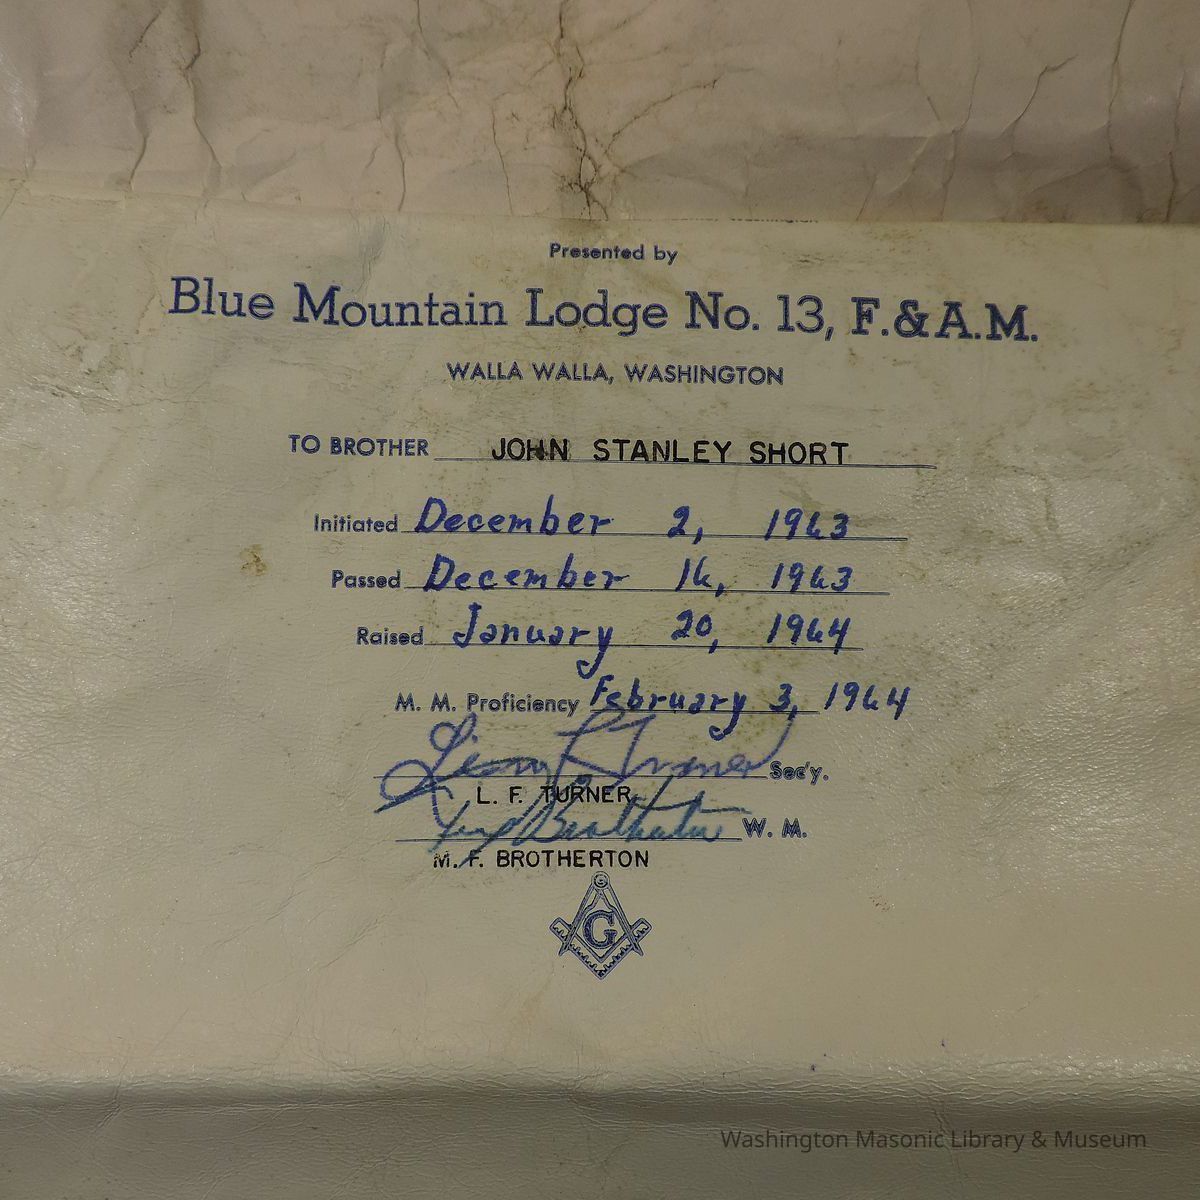 Presented by
Blue Mountain Lodge No. 13, F. & A.M.
WALLA WALLA, WASHINGTON
TO BROTHER JOHN STANLEY SHORT
Initiated December 2, 1963
Passed December 16, 1963
Raised January 20, 1964
M. M. Proficiency February 3, 1964
Turner Sec'y.
L. F. TURNER
Brotherton W. M.
M. F. BROTHERTON
G
Washington Masonic Library & Museum